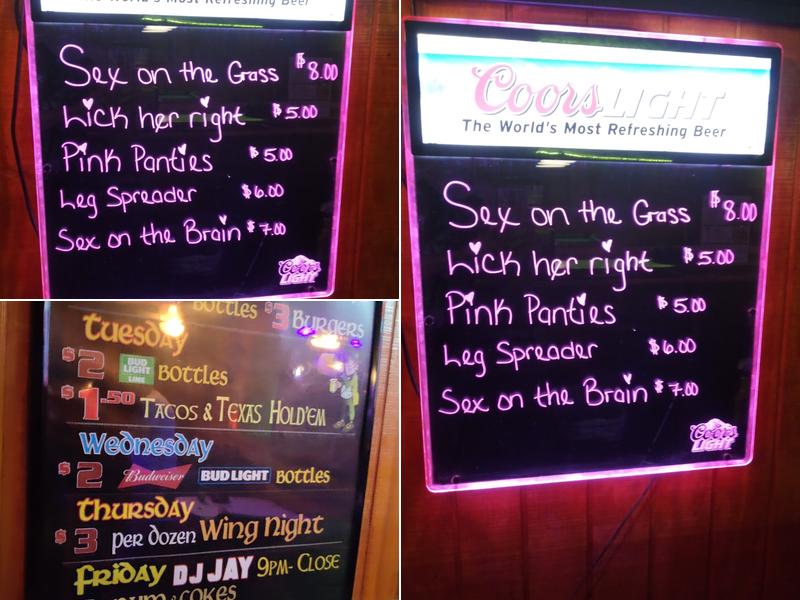 The World's Most Refreshing Beer
Sex on the Grass $8.00
Lick her right $5.00
Pink Panties $5.00
Leg Spreader $6.00
Sex on the Brain $7.00
Coors LIGHT
Coors LIGHT
The World's Most Refreshing Beer
Sex on the Grass $8.00
Lick her right $5.00
Pink Panties $5.00
Leg Spreader $6.00
Sex on the Brain $7.00
Coors LIGHT
BOTTLES $3 BURGERS
TUESDAY
$2 BUD LIGHT LIME BOTTLES
$1.50 TACOS & TEXAS HOLD'EM
WEDNESDAY
$2 Budweiser BUD LIGHT BOTTLES
THURSDAY
$3 PER DOZEN WING NIGHT
FRIDAY DJ JAY 9PM- CLOSE
& COKES